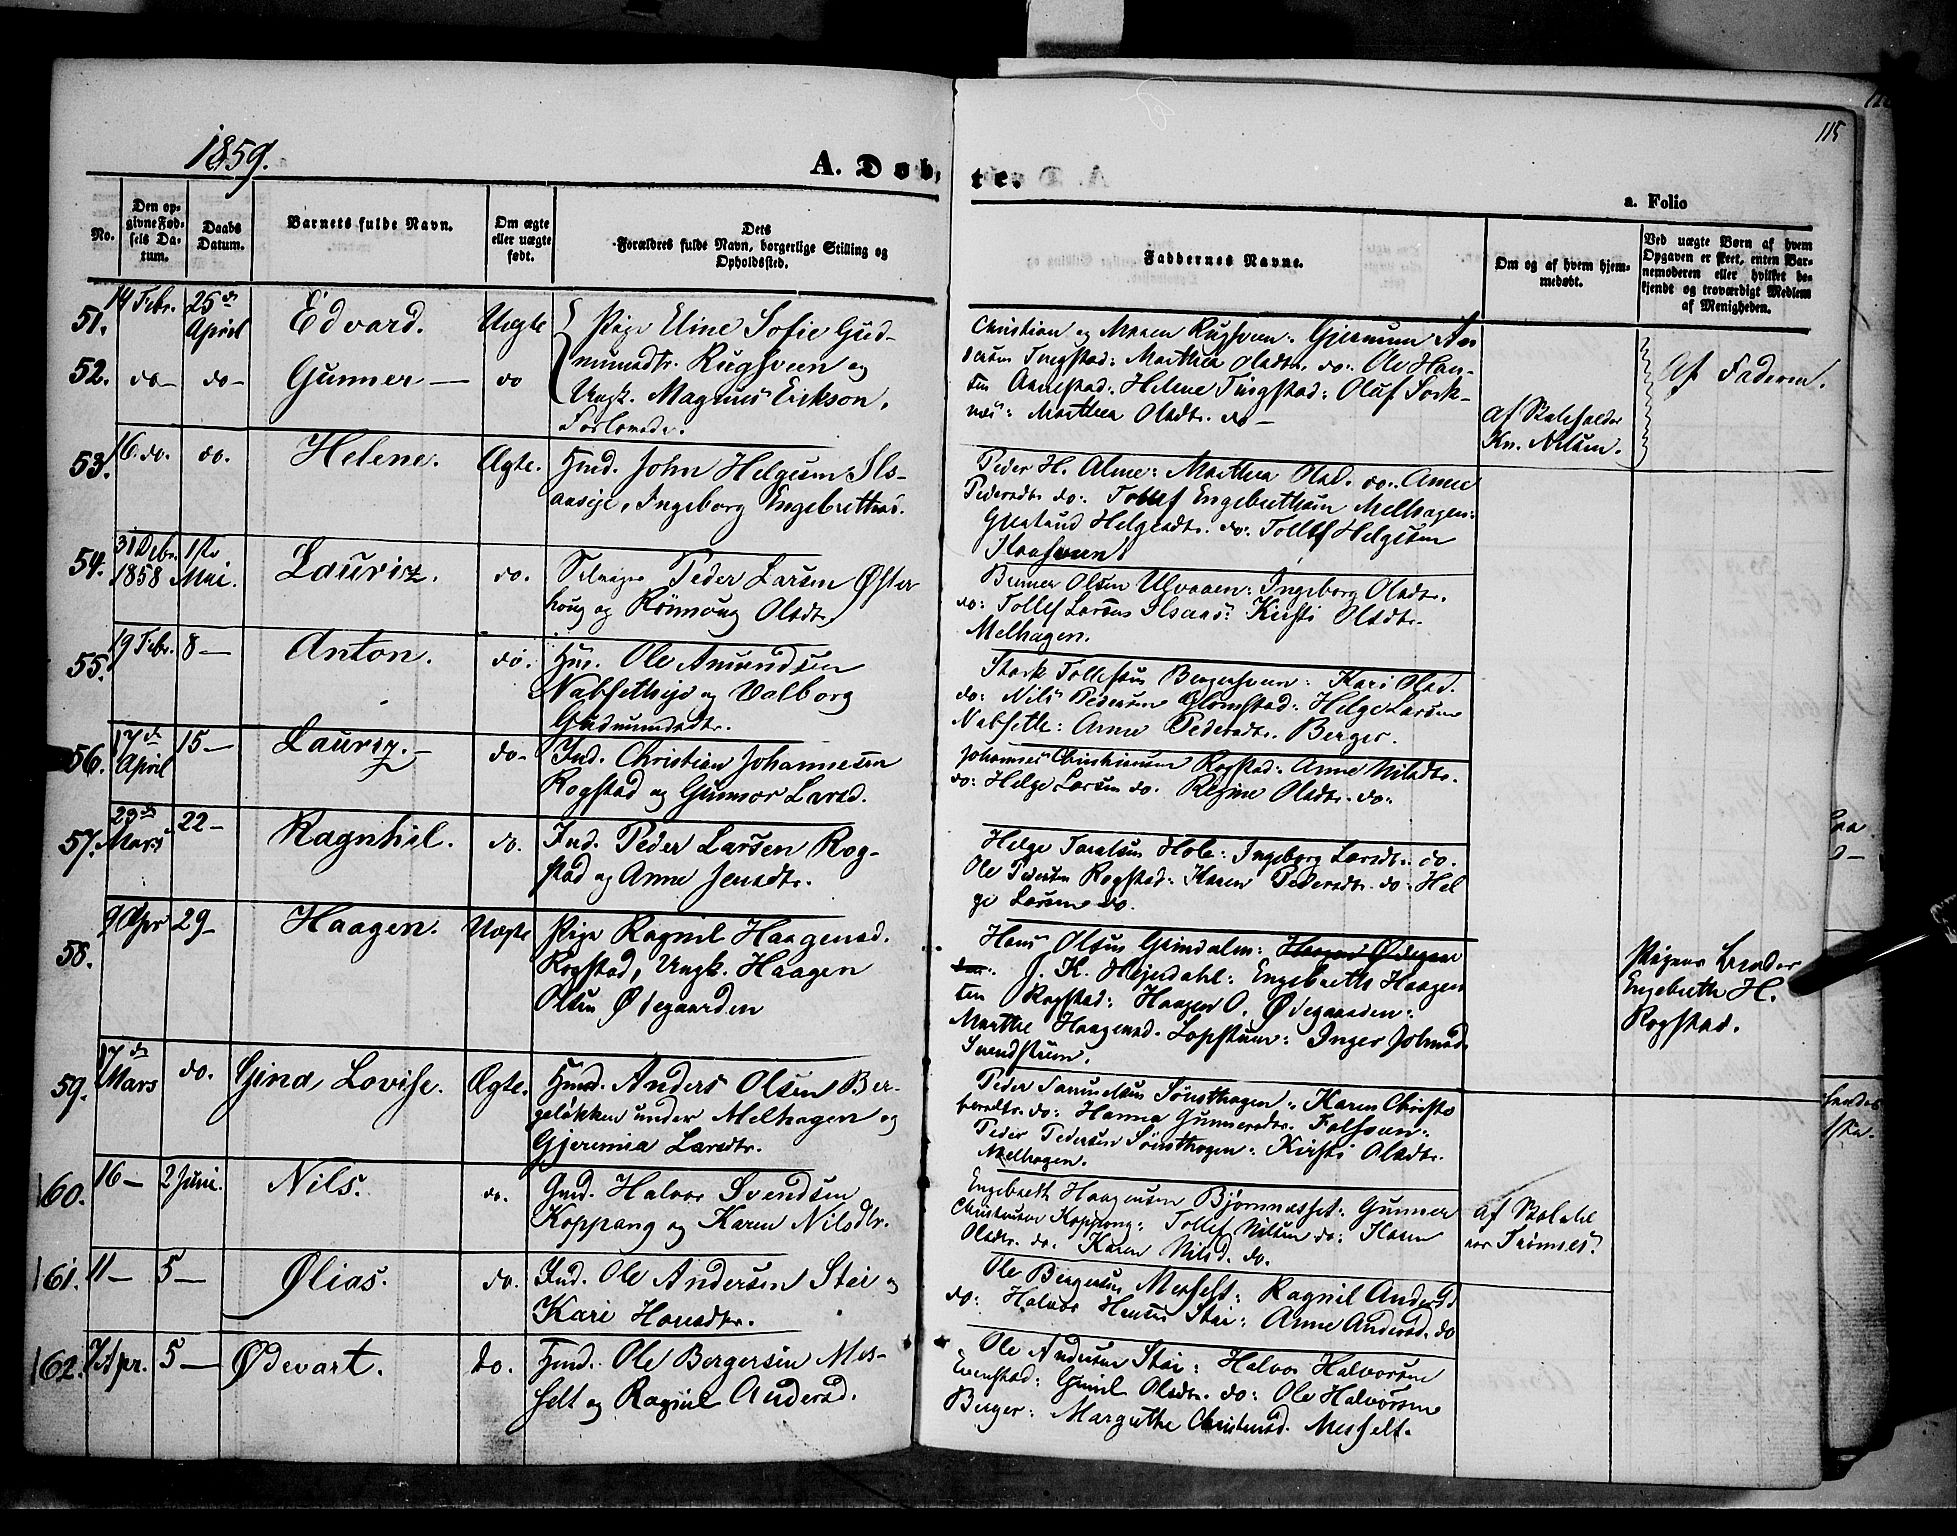 1859.
A. Døb-
te.
115
a. Folio
No.
Den op-
givne Fød-
sels Da-
tum.
Daabs
Datum.
Barnets fulde Navn.
Om ægte
eller uægte
født.
Dets
Forældres fulde Navn, borgerlige Stilling og
Opholdssted.
Faddernes Navne.
Om og af hvem hjem-
medøbt.
Ved uægte Børn af hvem
Opgaven er skeet, enten Bar-
nemoderen eller hvilket be-
kjendt og troværdigt Medlem
af Menigheden.
51.
14 Febr.
25de
April
Edvard.
Uægte
Pige Eline Sofie Gud-
mundsdtr. Rugsveen og
Ungk. Magnus Erikson,
52.
do-
do-
Gunner
do
Christian og Maren Rugsveen: Gjermun
Tingstad: Marthea Olsdtr. do: Ole Han-
sen Aanestad: Helene Tingstad: Oluf Sork-
nes: Marthea Olsdtr. do-
Af Skoleholder
Kn. Nilsen.
Af Faderen.
53.
16. do.
do.
Helene.
Ægte.
Hmd. John Helgesen Ils-
aaseje, Ingeborg Engebrethsd.
Peder H. Alme: Marthea Olsd. do. Anne
Pedersdtr. do: Tollef Engebrethsen Melhagen:
Helgesdtr. do. Tollef Helgesen
54.
31 Decbr.
1858
1ste
Mai.
Lauriz.
do.
Selveier Peder Larsen Øster
houg og Rönnoug Olsdtr.
Olsen Ulvaaen: Ingeborg Olsdtr.
do: Tollef Larsen Ilsaas: Kirsti Olsdtr.
Melhagen.
55.
19 Febr.
8-
Anton.
do.
Hus. Ole Amundsen
Nabsetheje og Valborg
Gudmundsdtr.
Stark Tollefsen Bergersveen: Kari Olsd.
do: Nils Pedersen Glomstad: Helge Larsen
Nabseth: Anne Pedersdtr. Berger.
56.
17de
April
15-
Lauriz.-
do-
Ind. Christian Johannesen
Rogstad og Gunnor Larsd.
Johannes Christiansen Rogstad: Anne Nilsdtr.
do: Helge Larsen do. Regine Olsdtr. do:
57.
23de
Mars
22-
Ragnhil.
do.
Ind. Peder Larsen Rog-
stad og Anne Jensdtr.
Helge Taralsen Hole: Ingeborg Larsdtr. do.
Ole Pedersen Rogstad: Karen Pedersdtr. do: Hel
ge Larsen do.
58.
9 Apr
29-
Haagen.
Uægte
Pige Ragnil Haagensd.
Rogstad, Ungk. Haagen
Olsen Ødegaarden
Hans Olsen Grindalen: Haagen Ødegaar
den: J. K. Hejerdahl: Engebreth Haagen
sen Rogstad: Haagen O. Ødegaarden:
Marthe Haagensd. Lopstuen: Inger Johnsd.
Svendstuen.
Pigens Broder
Engebreth H.
Rogstad.
59.
17de
Mars
do.
Gina Lovise.
Ægte.
Hmd. Anders Olsen Ber-
geløkken under Melhagen og
Gjermina Larsdtr.
Peder Samuelsen Sønsthagen: Karen Christo
fersdtr. do: Hanna Gunnersdtr.
Peder Pedersen Sønsthagen: Kirsti Olsdtr.
Melhagen.
160.
16-
2 Juni.
Nils.
do.
Gmd. Halvor Svendsen
Koppang og Karen Nilsdtr.
Engebreth Haagensen Bjørnnesset: Gunner
Christensen Koppang: Tollef Nilsen do: Karen
Olsdtr. do. Karen Nilsd. do.
Af Skolehol
der Trønnes.
161.
11-
5-
Olias.
do.
Ind. Ole Andersen Stai og
Kari Hansdtr.
Ole Bergersen Messelt: Ragnil Andersd
do: Halvor Hansen Stai: Anne Andersd. do
162.
7 Apr.
5-
Ødevart.
do.
Hmd. Ole Bergersen Mes-
selt og Ragnil Andersd.
Ole Andersen Stai: Halvor Halvorsen
Evenstad: Gunil Olsdtr. do: Ole Halvorsen
Berger: Margrethe Christensd. Messelt.